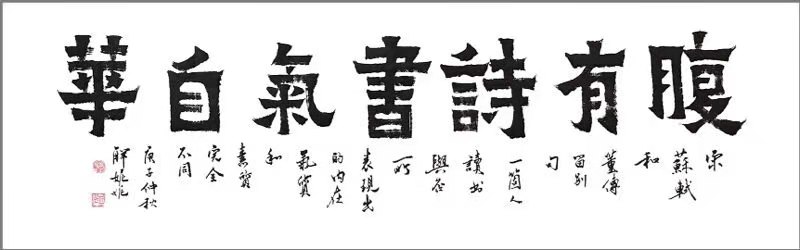 腹有詩書氣自華
宋
蘇軾
和
董傳
留別
句
一箇人
讀書
與否
所
表現出
的内在
氣質
和
素質
完全
不同
庚子仲秋